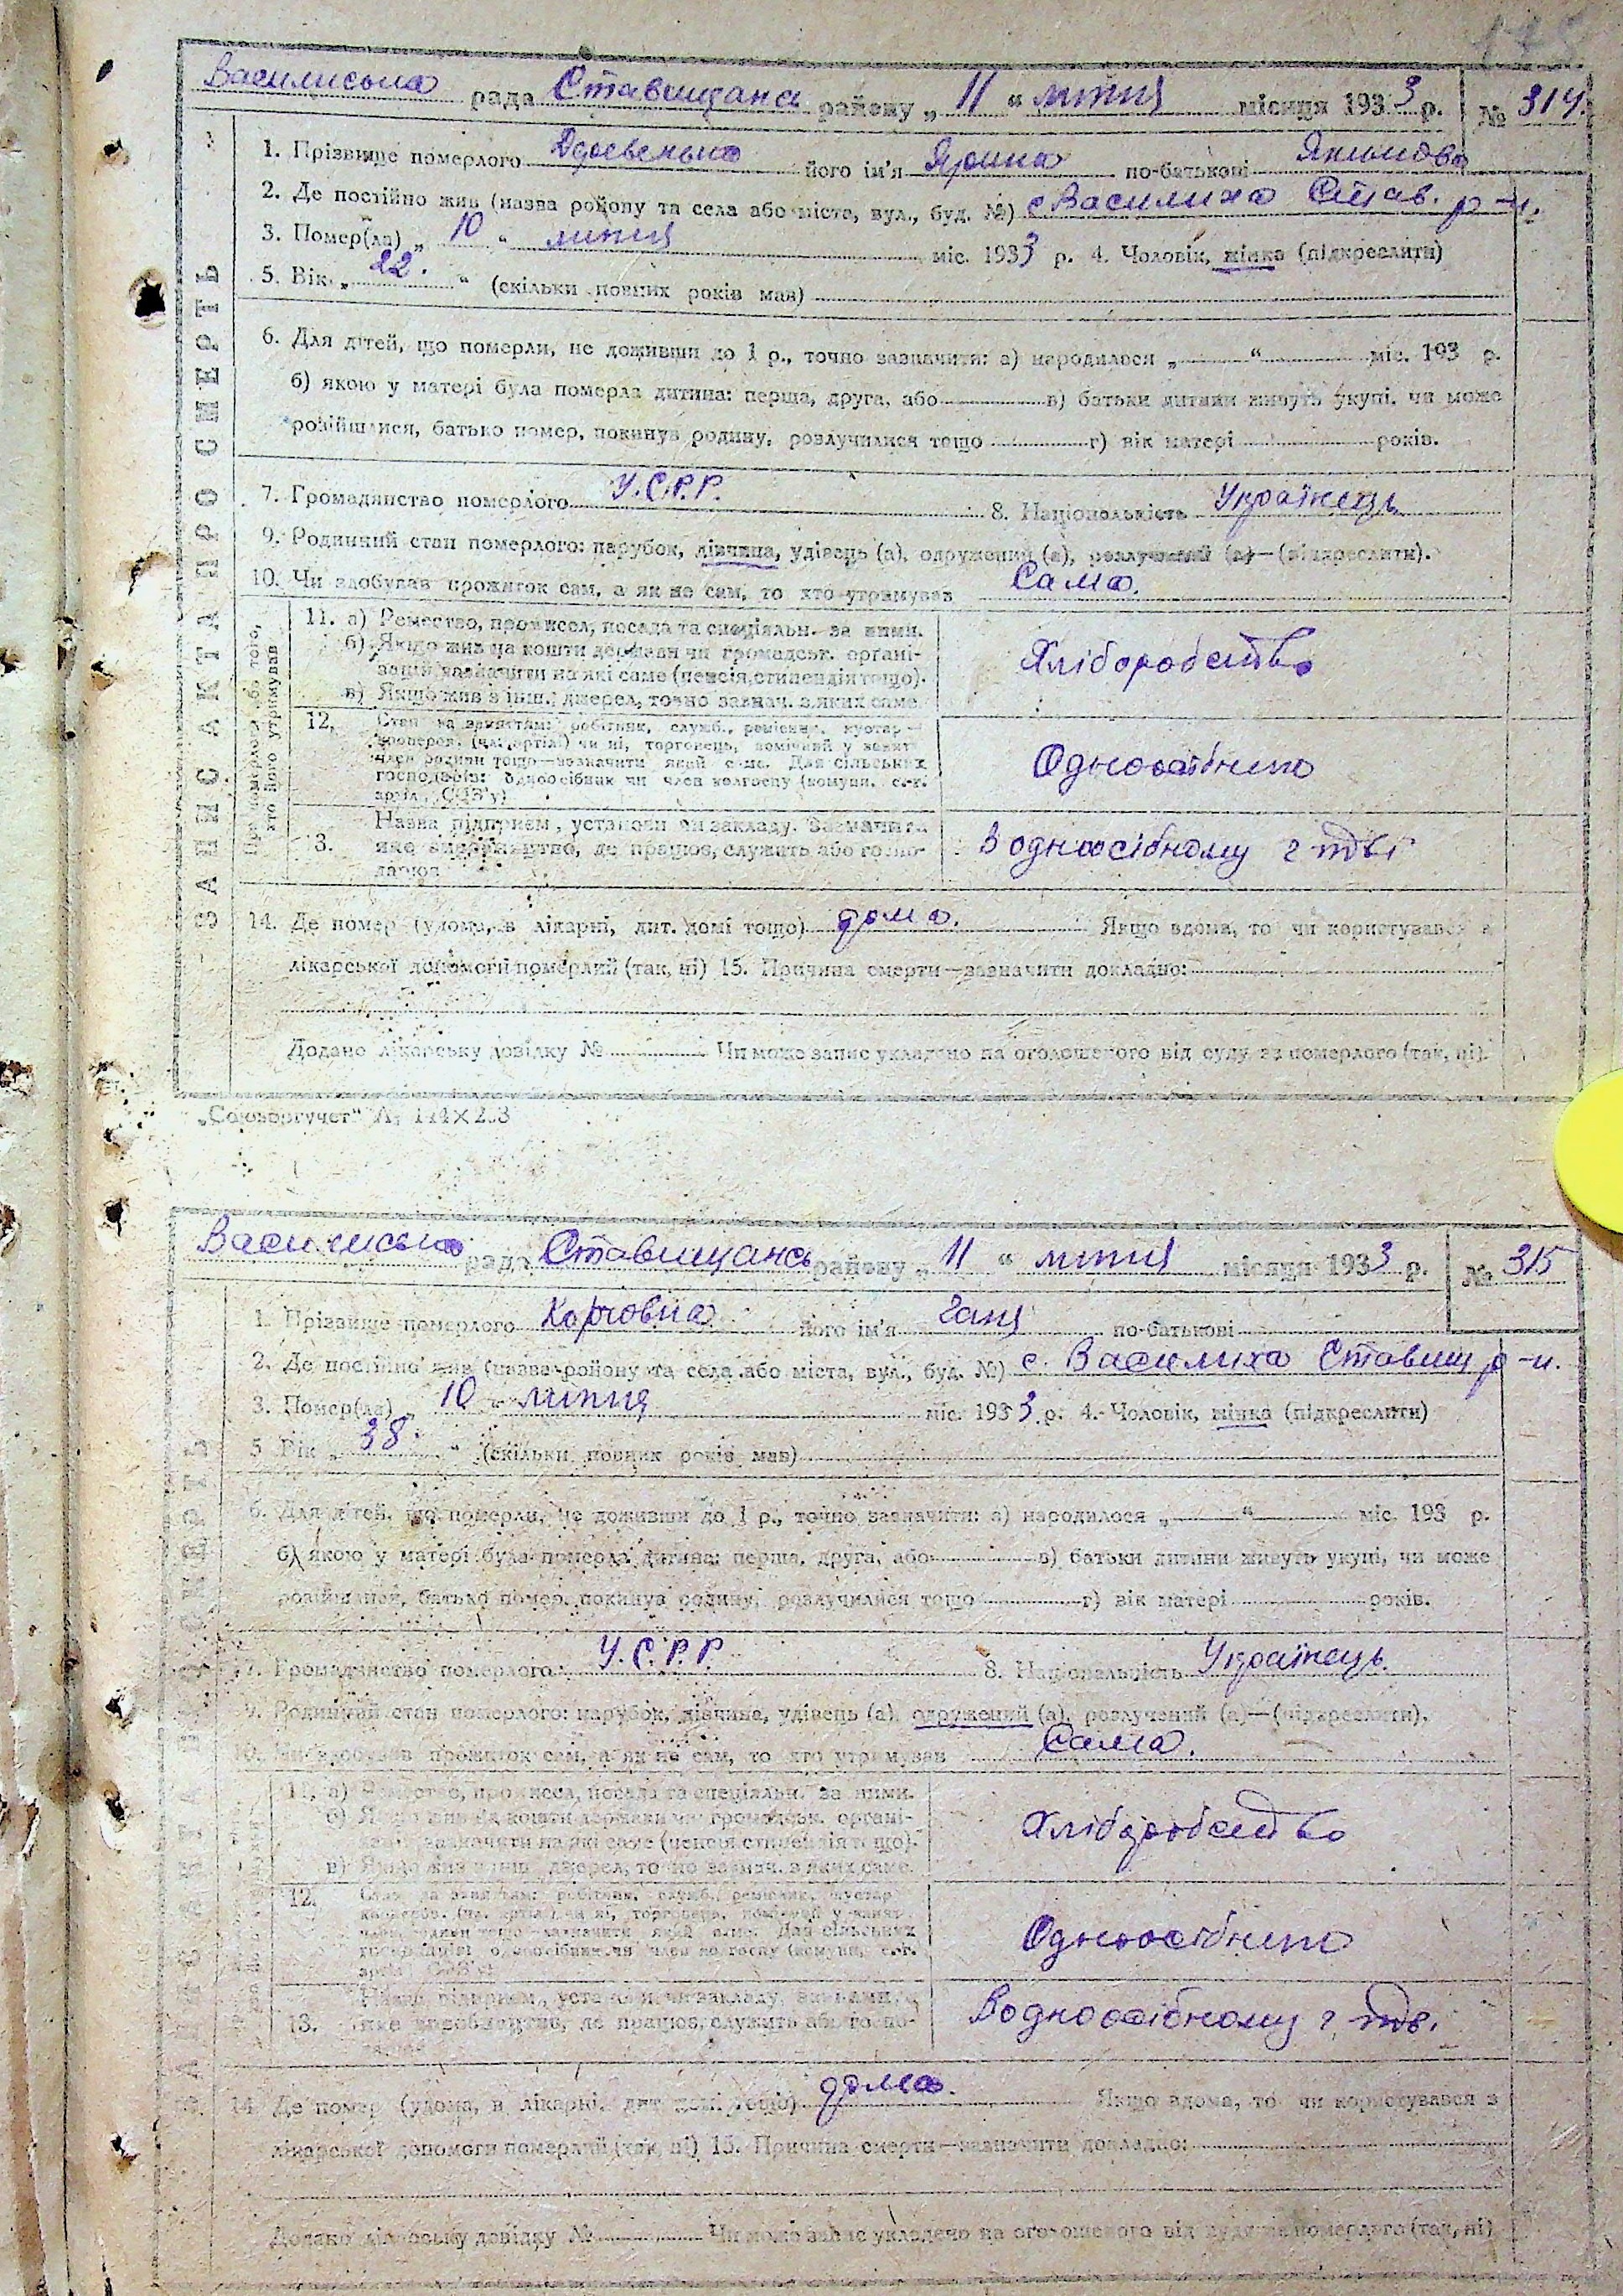 Василиська рада Ставищанс району „ 11 “ липня місяця 1933 р. № 314.
1. Прізвище померлого його ім'я Ярина по-батькові
2. Де постійно жив (назва району та села або міста, вул., буд. №) с Василиха Став. р-н.
3. Помер(ла) „ 10 “ липня міс. 1933 р. 4. Чоловік, жінка (підкреслити)
5. Вік „ 22. “ (скільки повних років мав)
6. Для дітей, що померли, не доживши до 1 р., точно зазначити: а) народилося „ “ міс. 193 р.
б) якою у матері була померла дитина: перша, друга, або в) батьки дитини живуть укупі, чи може
розійшлися, батько помер, покинув родину, розлучилися тощо г) вік матері років.
7. Громадянство померлого У.С.Р.Р. 8. Національність Українець
9. Родинний стан померлого: парубок, дівчина, удівець (а), одружений (а), розлучений (а)—(підкреслити).
10. Чи здобував прожиток сам, а як не сам, то хто утримував Сама.
ЗАПИС АКТА ПРО СМЕРТЬ
11. а) Ремество, промисел, посада та спеціяльн. за ними.
б) Якщо жив на кошти держави чи громадськ. органі-
зацій, зазначити на які саме (пенсія, стипендія тощо).
в) Якщо жив з інш. джерел, точно зазнач. з яких саме.
Хліборобство
12.
Одноосібниця
13. Назва підприєм., установи чи закладу. Зазначити
яке виробництво, де працює, служить або госпо-
дарює
В одноосібному г-тві
14. Де помер (удома, в лікарні, дит. домі тощо) дома. Якщо вдома, то чи користувався з
лікарської допомоги померлий (так, ні) 15. Причина смерти—зазначити докладно:
Додано лікарську довідку № Чи може запис укладено на оголошеного від суду за померлого (так, ні).
„Союзоргучет“
Василиська рада Ставищанс району „ 11 “ липня місяця 1933 р. № 315
1. Прізвище померлого Корчовна його ім'я Ганя по-батькові
2. Де постійно жив (назва району та села або міста, вул., буд. №) с. Василиха Ставищ р-н.
3. Помер(ла) „ 10 “ липня міс. 1933 р. 4. Чоловік, жінка (підкреслити)
5. Вік „ 38. “ (скільки повних років мав)
6. Для дітей, що померли, не доживши до 1 р., точно зазначити: а) народилося „ “ міс. 193 р.
б) якою у матері була померла дитина: перша, друга, або в) батьки дитини живуть укупі, чи може
розійшлися, батько помер, покинув родину, розлучилися тощо г) вік матері років.
7. Громадянство померлого У.С.Р.Р. 8. Національність Українець
9. Родинний стан померлого: парубок, дівчина, удівець (а), одружений (а), розлучений (а)—(підкреслити).
10. Чи здобував прожиток сам, а як не сам, то хто утримував Сама.
11. а) Ремество, промисел, посада та спеціяльн. за ними.
б) Якщо жив на кошти держави чи громадськ. органі-
зацій, зазначити на які саме (пенсія, стипендія тощо).
в) Якщо жив з інш. джерел, точно зазнач. з яких саме.
Хліборобство
12.
Одноосібниця
13. Назва підприєм., установи чи закладу. Зазначити
яке виробництво, де працює, служить або госпо-
дарює
В одноосібному г-тв.
14. Де помер (удома, в лікарні, дит. домі тощо) дома. Якщо вдома, то чи користувався з
лікарської допомоги померлий (так, ні) 15. Причина смерти—зазначити докладно:
Додано лікарську довідку № Чи може запис укладено на оголошеного від суду за померлого (так, ні)